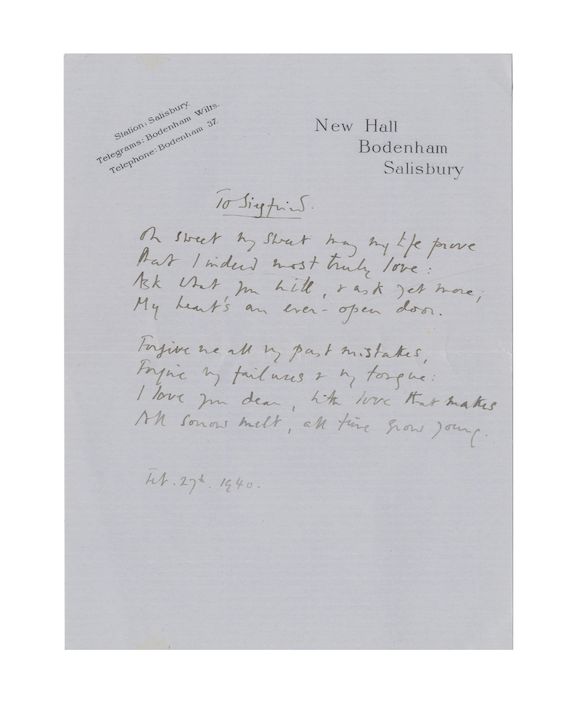 Station: Salisbury.
Telegrams: Bodenham Wilts.
Telephone: Bodenham 37.
New Hall
Bodenham
Salisbury
To Siegfried.
Oh sweet my sweet may my life prove
That I indeed most truly love:
Ask what you will, & ask yet more;
My heart's an ever-open door.
Forgive me all my past mistakes,
Forgive my failures & my tongue:
I love you dear, with love that makes
All sorrow melt, all time grow young.
Feb. 27th. 1940.